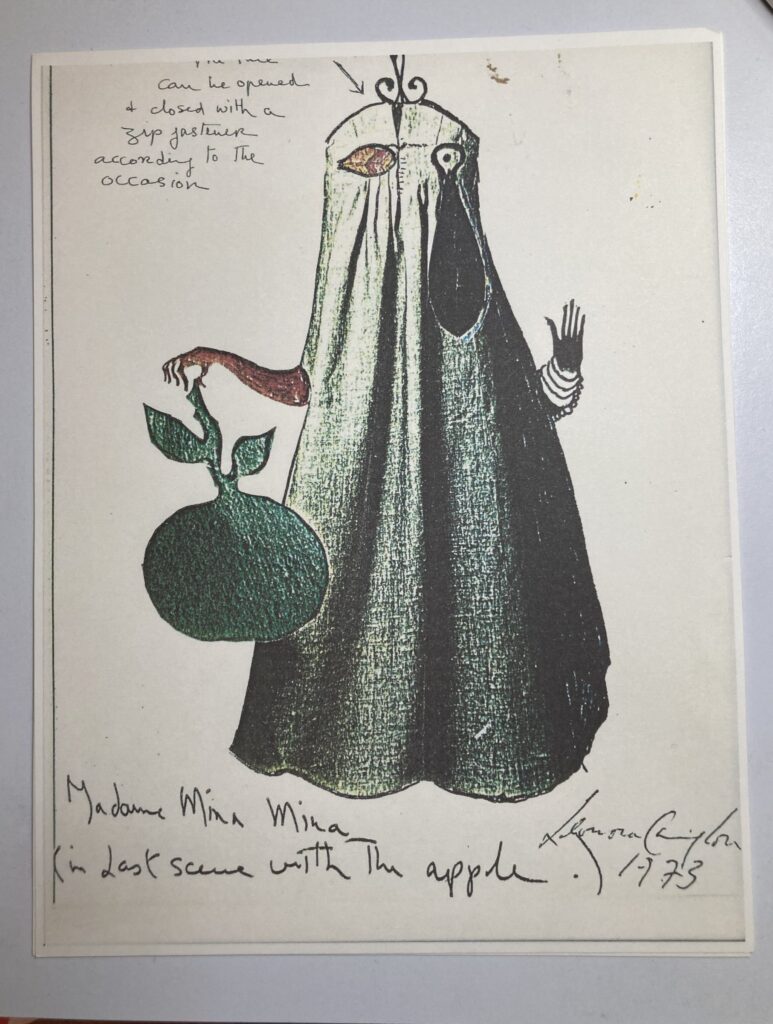 can be opened
& closed with a
zip fastener
according to the
occasion
Madame Mina Mina
(in last scene with the apple.)
Leonora Carrington
1973